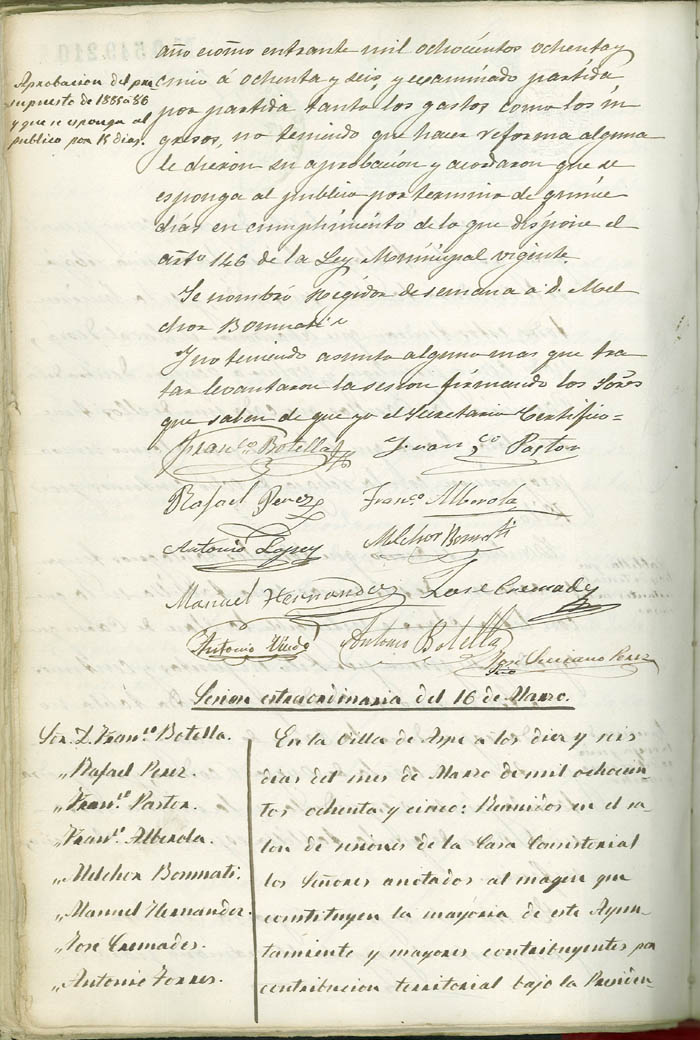 año ecomo entrante mil ochocientos ochenta y
cinco á ochenta y seis, y examinado partida
por partida tanto los gastos como los in
gresos, no teniendo que hacer reforma alguna
le dieron su aprobación y acordaron que se
esponga al publico por termino de quince
dias en cumplimiento de lo que dispone el
artº 146 de la Ley Municipal vigente
Aprobacion del pre
supuesto de 1885 á 86
y que se esponga al
publico por 15 dias.
Se nombró Regidor de semana a D. Mel
chor Bonmati
Y no teniendo asunto alguno mas que tra
tar levantaron la sesion firmando los Sores
que saben de que yo el Secretario Certifico=
Franco Botella
Juan Pastor
Rafael Perez
Franco Alberola
Antonio Lopez
Melchor Bonmati
Manuel Hernandez
José Cremades
Antonio
Antonio Botella
José Perez
Srio
Sesion estraordinaria del 16 de Marzo.
Sor. D. Franco Botella.
„ Rafael Perez.
„ Franco Pastor.
„ Franco Alberola.
„ Melchor Bonmati.
„ Manuel Hernandez.
„ José Cremades.
„ Antonio Torres.
En la Villa de Aspe a los diez y seis
dias del mes de Marzo de mil ochocien-
tos ochenta y cinco: Reunidos en el sa-
lon de sesiones de la Casa Consistorial
los Señores anotados al magen que
constituyen la mayoria de este Ayun-
tamiento y mayores contribuyentes por
contribucion territorial bajo la Presiden-